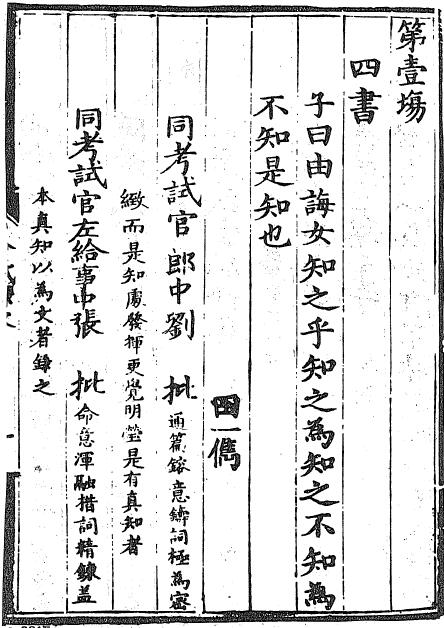 第壹塲
四書
子曰由誨女知之乎知之為知之不知為
不知是知也
田一儁
同考試官郎中劉 批通篇鎔意鑄詞極為密
緻而是知處發揮更覺明瑩是有真知者
同考試官左給事中張 批命意渾融措詞精鍊蓋
本真知以為文者錄之